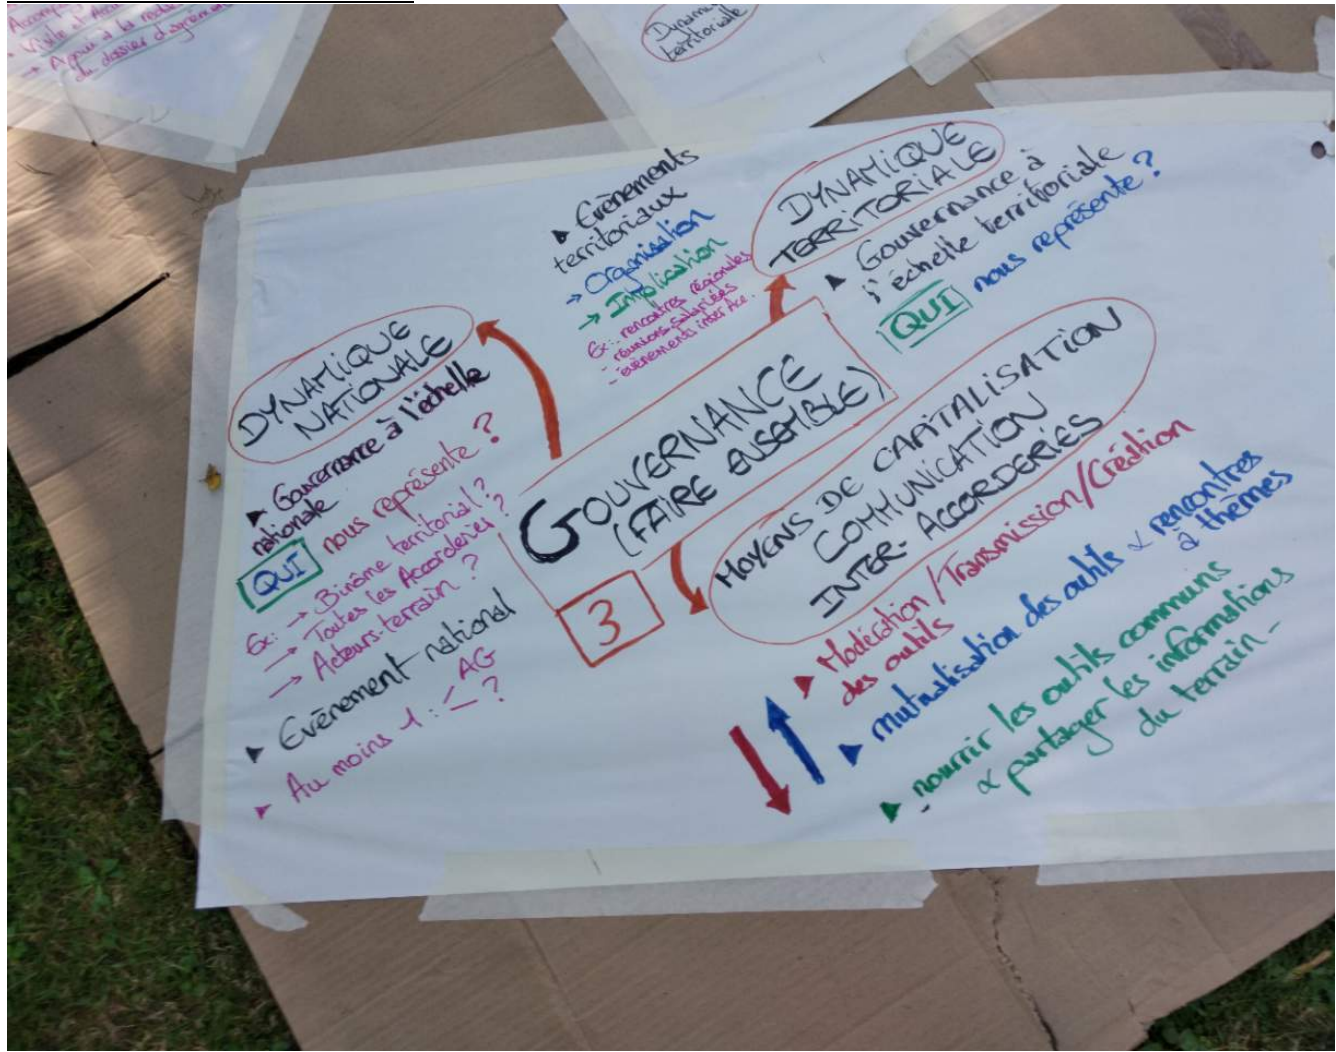 → Visite et
→ Appui à la
du dossier d'agrément
Dynamique
territoriale
DYNAMIQUE
NATIONALE
► Gouvernance à l'échelle
nationale
QUI nous représente ?
Ex: → Binôme territorial ?
→ Toutes les Accorderies ?
→ Acteurs-terrain ?
► Evènement national
► Au moins 1 : AG
?
► Evènements
territoriaux
→ Organisation
→ Implication
Ex: - rencontres régionales
- réunions salariées
- évènements inter Acc.
DYNAMIQUE
TERRITORIALE
► Gouvernance à
l'échelle territoriale
QUI nous représente ?
GOUVERNANCE
(FAIRE ENSEMBLE)
3
MOYENS DE CAPITALISATION
COMMUNICATION
INTER-ACCORDERIES
► Modération/Transmission/Création
des outils
► mutualisation des outils & rencontres
à thèmes
► nourrir les outils communs
& partager les informations
du terrain -